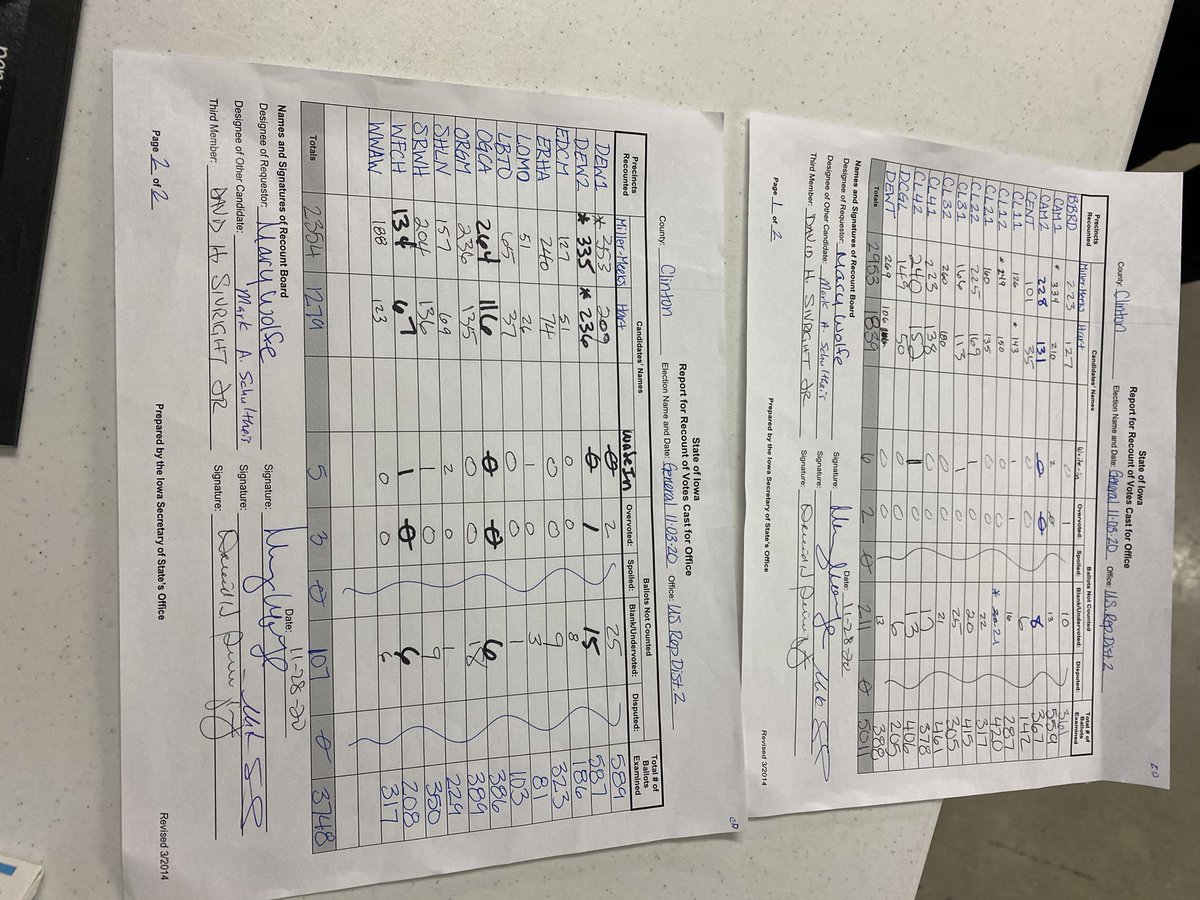 ED
State of Iowa
Report for Recount of Votes Cast for Office
County: Clinton Election Name and Date: General 11-03-20 Office: U.S. Rep Dist. 2
Candidates' Names Ballots Not Counted
Precincts Recounted Miller-Meeks Hart Write-in Overvoted: Spoiled: Blank/Undervoted: Disputed: Total # of Ballots Examined
BBRD 223 127 0 1 10 361
CAM1 * 334 210 2 0 13 559
CAM2 228 131 0 0 8 367
CENT 101 35 0 0 6 142
CL11 126 * 143 1 1 16 287
CL12 * 249 150 0 0 * 21 420
CL21 160 135 0 0 22 317
CL22 225 169 1 0 20 415
CL31 166 113 1 0 25 305
CL32 260 180 0 0 21 461
CL41 223 138 0 0 17 378
CL42 240 152 1 0 13 406
DCGL 149 50 0 0 6 205
DENT 269 106 0 0 13 388
Totals 2953 1839 6 2 0 211 0 5011
Names and Signatures of Recount Board Date: 11-28-20
Designee of Requestor: Mary Wolfe Signature:
Designee of Other Candidate: Mark A. Schultheis Signature:
Third Member: DAVID H. SIVRIGHT JR Signature:
Page 1 of 2 Prepared by the Iowa Secretary of State's Office Revised 3/2014
ED
State of Iowa
Report for Recount of Votes Cast for Office
County: Clinton Election Name and Date: General 11-03-20 Office: US Rep Dist. 2
Candidates' Names Ballots Not Counted
Precincts Recounted Miller-Meeks Hart Write In Overvoted: Spoiled: Blank/Undervoted: Disputed: Total # of Ballots Examined
DEW1 * 353 209 0 2 25 589
DEW2 * 335 * 236 0 1 15 587
EDCM 127 51 0 0 8 186
ERHA 240 74 0 0 9 323
LOMO 51 26 1 0 3 81
LBTO 65 37 0 0 1 103
OGCA 264 116 0 0 6 386
ORGM 236 135 0 0 18 389
SHLN 157 69 2 0 1 229
SRWH 204 136 1 0 9 350
WFCH 134 67 1 0 6 208
WWAV 188 123 0 0 6 317
Totals 2354 1279 5 3 0 107 0 3748
Names and Signatures of Recount Board Date: 11-28-20
Designee of Requestor: Mary Wolfe Signature:
Designee of Other Candidate: Mark A. Schultheis Signature:
Third Member: DAVID H. SIVRIGHT JR Signature:
Page 2 of 2 Prepared by the Iowa Secretary of State's Office Revised 3/2014